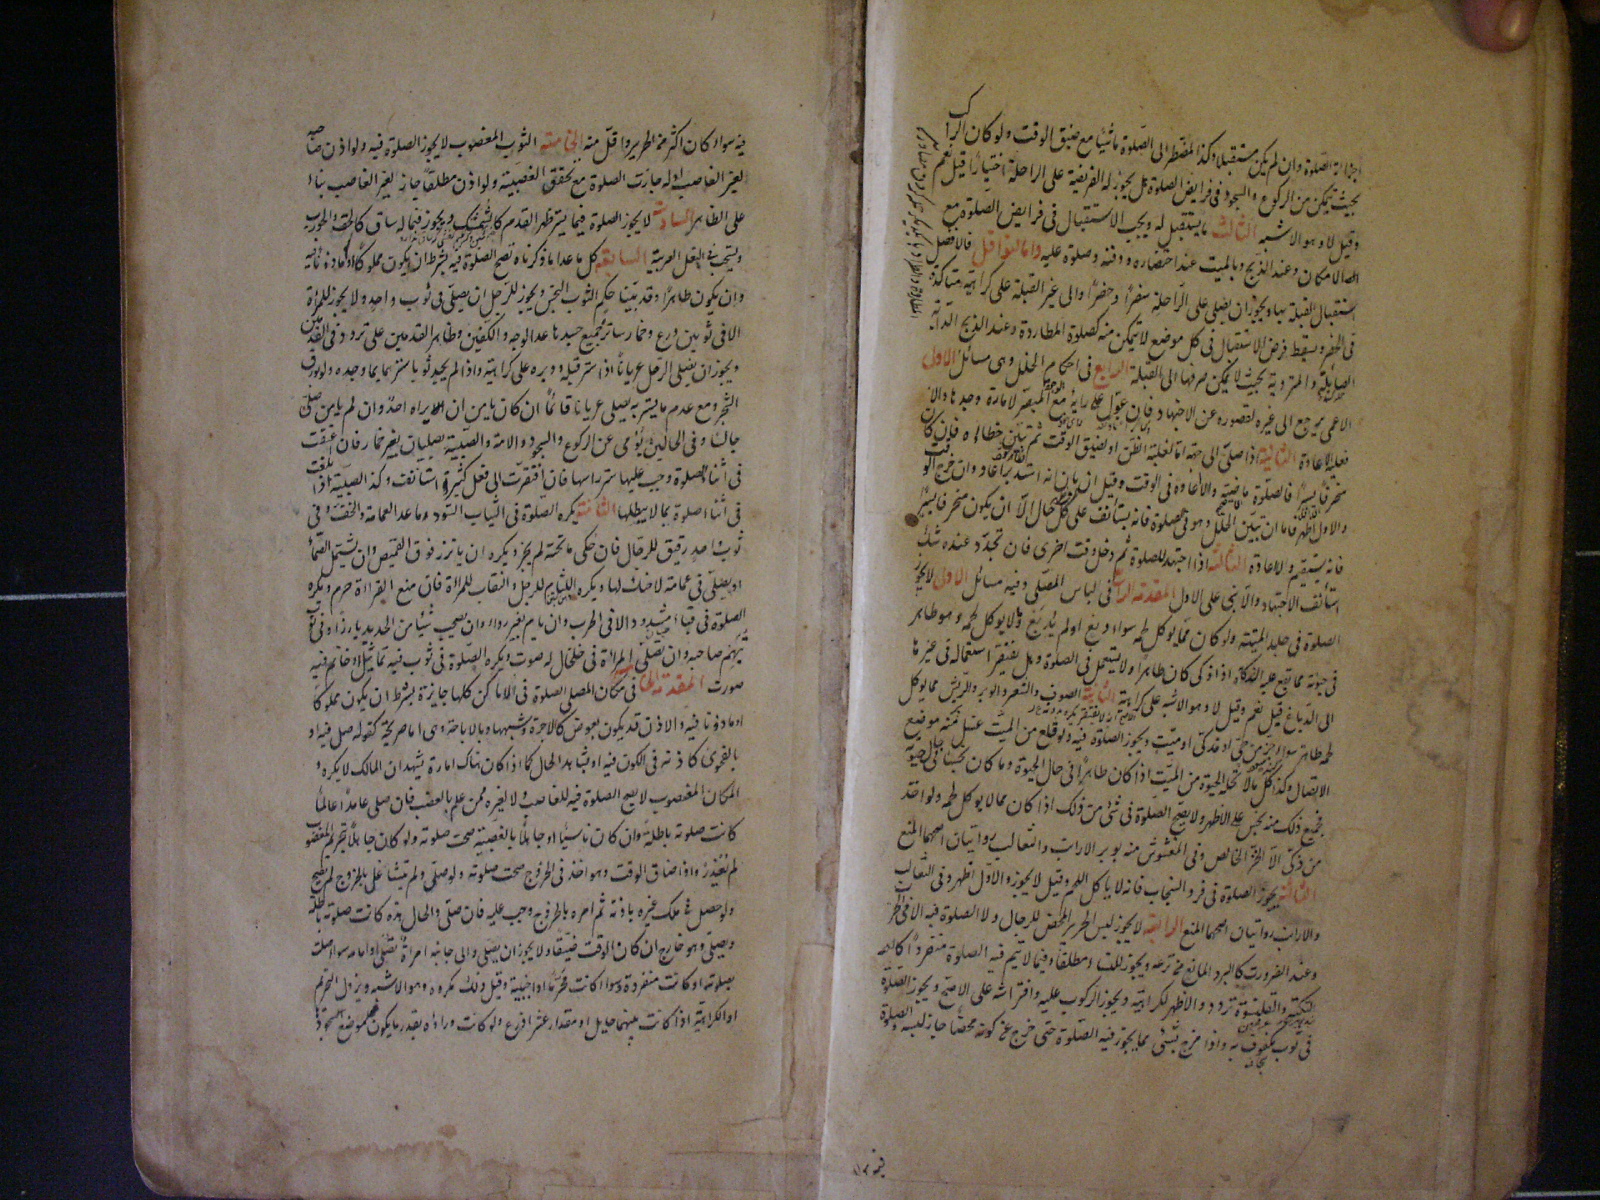 اجزاته الصلوة وان لم يكن مستقبلا وكذا المضطر الى الصلوة ماشيا مع ضيق الوقت ولو كان الراكب
بحيث يتمكن من الركوع والسجود فى فرايض الصلوة هل يجوز له الفريضة على الراحلة اختيارا قيل نعم
وقيل لا وهو الاشبه الثالث ما يستقبل له ويجب الاستقبال فى فرايض الصلوة مع
الامكان وعند الذبح وبالميت عند احتضاره ودفنه وصلوة عليه واما النوافل فالافضل
استقبال القبلة بها ويجوز ان يصلى على الراحلة سفرا وحضرا والى غير القبلة على كراهية متاكدة
فى الحضر ويسقط فرض الاستقبال فى كل موضع لا يتمكن منه كصلوة المطاردة وعند الذبح الدابة
الصايلة والمتردية بحيث لا يمكن صرفها الى القبلة الرابع فى احكام الخلل وهى مسائل الاولى
الاعمى يرجع الى غيره لقصوره عن الاجتهاد فان عول على رايه مع المبصر لامارة وجدها والا
فعليه الاعادة الثانية اذا صلى الى جهة اما لغلبة الظن او لضيق الوقت ثم تبين خطاؤه فان كان
منحرفا يسيرا فالصلوة ماضية والا اعاد فى الوقت وقيل ان بان انه استدبر اعاد وان خرج الوقت
والاول اظهر فاما ان تبين الخلل وهو فى الصلوة فانه يستانف على كل حال الا ان يكون منحرفا يسيرا
فانه يستقيم ولا اعادة الثالثة اذا اجتهد للصلوة ثم دخل وقت اخرى فان تجدد عنده شك
استانف الاجتهاد والا بنى على الاول المقدمة الرابعة فى لباس المصلى وفيه مسائل الاولى لا يجوز
الصلوة فى جلد الميتة ولو كان مما يوكل لحمه سواء دبغ او لم يدبغ وما لا يوكل لحمه وهو طاهر
فى حيوته مما يقع عليه الذكاة اذا ذكى كان طاهرا ولا يستعمل فى الصلوة وهل يفتقر استعماله فى غيرها
الى الدباغ قيل نعم وقيل لا وهو الاشبه على كراهية الثانية الصوف والشعر والوبر والريش مما يوكل
لحمه طاهر سواء جز من حى او مذكى او ميت ويجوز الصلوة فيه ولو قلع من الميت غسل منه موضع
الاتصال وكذا كل ما لا تحله الحيوة من الميت اذا كان طاهرا فى حال الحيوة وما كان نجسا فى حال حيوته
فجميع ذلك منه نجس على الاظهر ولا يصح الصلوة فى شئ من ذلك اذا كان مما لا يوكل لحمه ولو اخذ
من مذكى الا الخز الخالص وفى المغشوش منه بوبر الارانب والثعالب روايتان اصحهما المنع
الثالثة يجوز الصلوة فى فرو السنجاب فانه لا ياكل اللحم وقيل لا يجوز والاول اظهر وفى الثعالب
والارانب روايتان اصحهما المنع الرابعة لا يجوز لبس الحرير المحض للرجال ولا الصلوة فيه الا فى الحرب
وعند الضرورت كالبرد المانع من نزعه ويجوز للنساء مطلقا وفيما لا يتم فيه الصلوة منفردا كالتكة
والقلنسوة تردد والاظهر الكراهية ويجوز الركوب عليه وافتراشه على الاصح ويجوز الصلوة
فى ثوب مكفوف به واذا مزج بشئ مما يجوز فيه الصلوة حتى خرج عن كونه محضا جاز لبسه والصلوة
فيه سواء كان اكثر من الحرير او اقل منه الخامسة الثوب المغصوب لا يجوز الصلوة فيه ولو اذن صاحبه
لغير الغاصب او له جازت الصلوة مع تحقق الغصبية ولو اذن مطلقا جاز لغير الغاصب بناء
على الظاهر السادسة لا يجوز الصلوة فيما يستر ظهر القدم كالشمشك ويجوز فيما له ساق كالخف والجورب
ويستحب فى النعل العربية السابعة كل ما عدا ما ذكرناه تصح الصلوة فيه بشرط ان يكون مملوكا او ماذونا فيه
وان يكون طاهرا وقد بينا حكم الثوب النجس ويجوز للرجل ان يصلى فى ثوب واحد ولا يجوز للمراة
الا فى ثوبين درع وخمار ساترة جميع جسدها عدا الوجه والكفين وظاهر القدمين على تردد فى القدمين
ويجوز ان يصلى الرجل عريانا اذا ستر قبله ودبره على كراهية واذا لم يجد ثوبا سترهما بما وجده ولو بورق
الشجر ومع عدم ما يستر به يصلى عريانا قائما ان كان يامن ان يراه احد وان لم يامن صلى
جالسا وفى الحالين يؤمى عن الركوع والسجود والامة والصبية يصليان بغير خمار فان اعتقت
فى اثناء الصلوة وجب عليها ستر راسها فان افتقرت الى فعل كثير استانفت وكذا الصبية اذا بلغت
فى اثناء الصلوة بما لا يبطلها الثامنة يكره الصلوة فى الثياب السود ما عدا العمامة والخف وفى
ثوب واحد رقيق للرجال فان حكى ما تحته لم يجز ويكره ان ياتزر فوق القميص وان يشتمل الصماء
او يصلى فى عمامة لا حنك لها ويكره اللثام للرجل والنقاب للمراة فان منع القراءة حرم ويكره
الصلوة فى قباء مشدود الا فى الحرب وان يام بغير رداء وان يصحب شيئا من الحديد بارزا وفى ثوب
يتهم صاحبه وان تصلى المراة فى خلخال له صوت ويكره الصلوة فى ثوب فيه تماثيل او خاتم فيه
صورت المقدمة الخامسة فى مكان المصلى الصلوة فى الاماكن كلها جايزة بشرط ان يكون مملوكا
او ماذونا فيه والاذن قد يكون بعوض كالاجرة وشبهها وبالاباحة وهى اما صريحة كقوله صل فيه او
بالفحوى كاذنه فى الكون فيه او بشاهد الحال كما اذا كان هناك امارة يشهد ان المالك لا يكره و
المكان المغصوب لا يصح الصلوة فيه للغاصب ولا لغيره ممن علم بالغصب فان صلى عامدا عالما
كانت صلوته باطلة وان كان ناسيا او جاهلا بالغصبية صحت صلوته ولو كان جاهلا بتحريم المغصوب
لم يعذر واذا ضاق الوقت وهو اخذ فى الخروج صحت صلوته ولو صلى ولم يتشاغل بالخروج لم يصح
ولو حصل فى ملك غيره باذنه ثم امره بالخروج وجب عليه فان صلى والحال هذه كانت صلوته باطلة
ويصلى وهو خارج ان كان الوقت ضيقا ولا يجوز ان يصلى والى جانبه امراة تصلى او امامه سواء صلت
بصلوته او كانت منفردة وسواء كانت محرما او اجنبية وقيل ذلك مكروه وهو الاشبه ويزول التحريم
او الكراهية اذا كانت بينهما حايل او مقدار عشر اذرع ولو كانت وراءه بقدر ما يكون موضع السجود